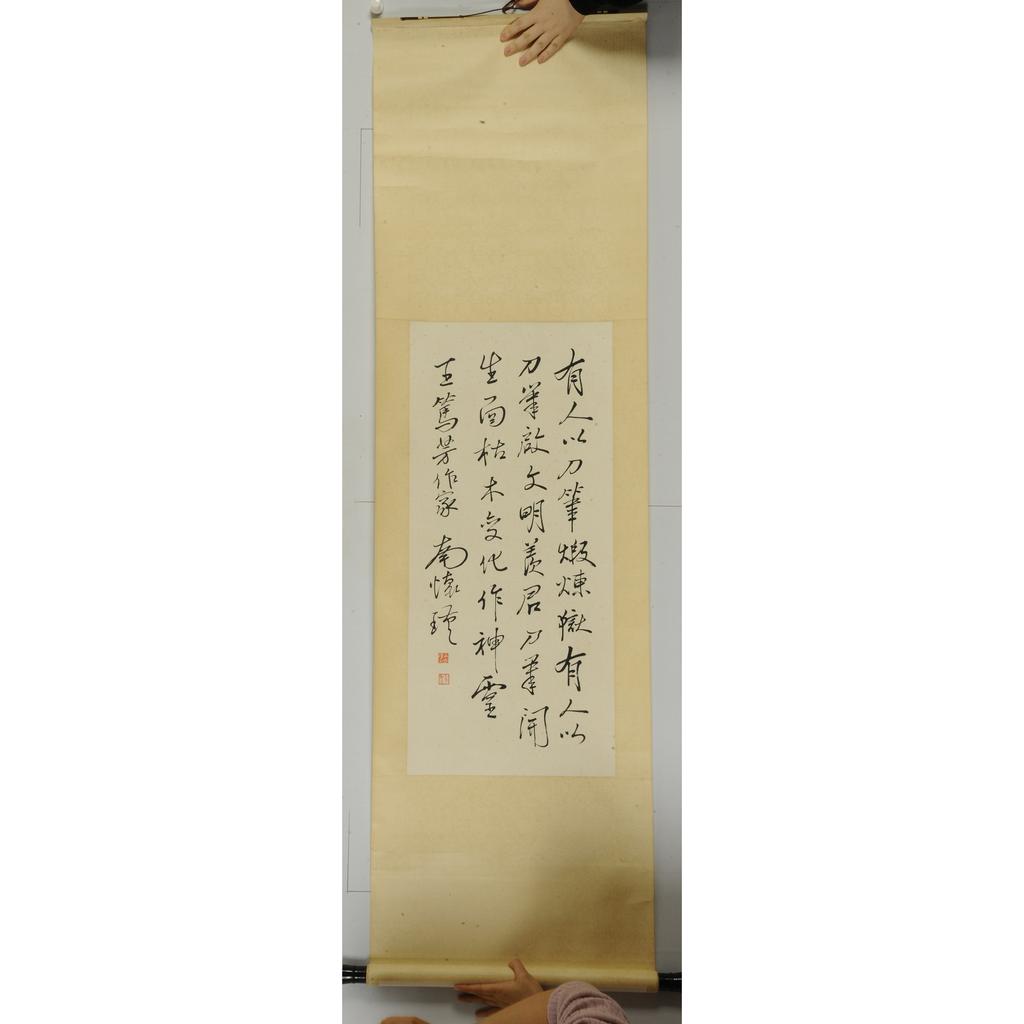 有人以刀筆煅煉獄有人以
刀筆啟文明羨君刀筆開
生面枯木变化作神靈
王篤芳作家 南懷瑾